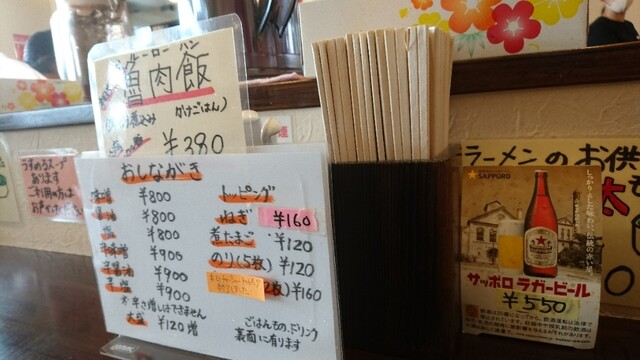 ルーローハン
魯肉飯
かけごはん)
¥380
おしながき
味噌 ¥800
醤油 ¥800
塩 ¥800
辛味噌 ¥900
辛醤油 ¥900
辛塩 ¥900
辛さ増しはできません
大盛 ¥120増
トッピング
ねぎ ¥160
煮たまご ¥120
のり(5枚) ¥120
2枚) ¥160
ごはんもの、ドリンク
裏面に有ります
うすめるスープ
あります
ご利用の方は
ラーメンのお供
SAPPORO
サッポロ ラガービール
¥550